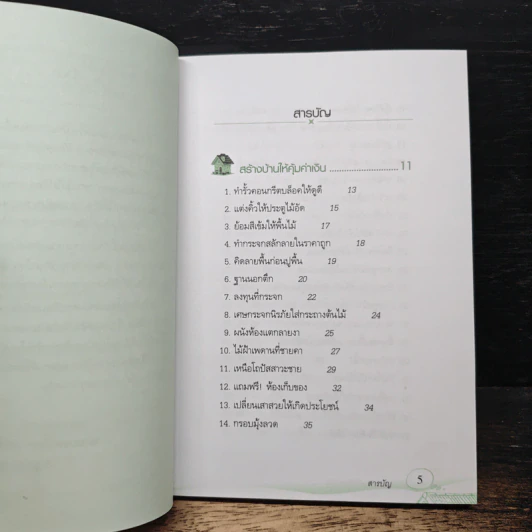 สารบัญ
สร้างบ้านให้คุ้มค่าเงิน ............................ 11
1. ทำรั้วคอนกรีตบล็อคให้ดูดี 13
2. แต่งคิ้วให้ประตูไม้อัด 15
3. ย้อมสีเข้มให้พื้นไม้ 17
4. ทำกระจกสลักลายในราคาถูก 18
5. คิดลายพื้นก่อนปูพื้น 19
6. ฐานนอกตึก 20
7. ลงทุนที่กระจก 22
8. เศษกระจกนิรภัยใส่กระถางต้นไม้ 24
9. ผนังห้องแตกลายงา 25
10. ไม้ฝ้าเพดานที่ชายคา 27
11. เหนือโถปัสสาวะชาย 29
12. แถมฟรี! ห้องเก็บของ 32
13. เปลี่ยนเสาสวยให้เกิดประโยชน์ 34
14. กรอบมุ้งลวด 35
สารบัญ 5